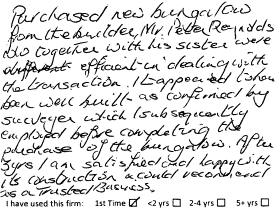 Purchased new bungalow
from the builder, Mr. Peter Reynolds
who together with his sister were
efficient in dealing with
the transaction. It appeared to have
been well built as confirmed by
surveyor which I subsequently
employed before completing the
purchase of the bungalow. After
3yrs I am satisfied and happy with
its construction & could recommend
as a Trusted Business.
I have used this firm: 1st Time ☑ <2 yrs ☐ 2-4 yrs ☐ 5+ yrs ☐